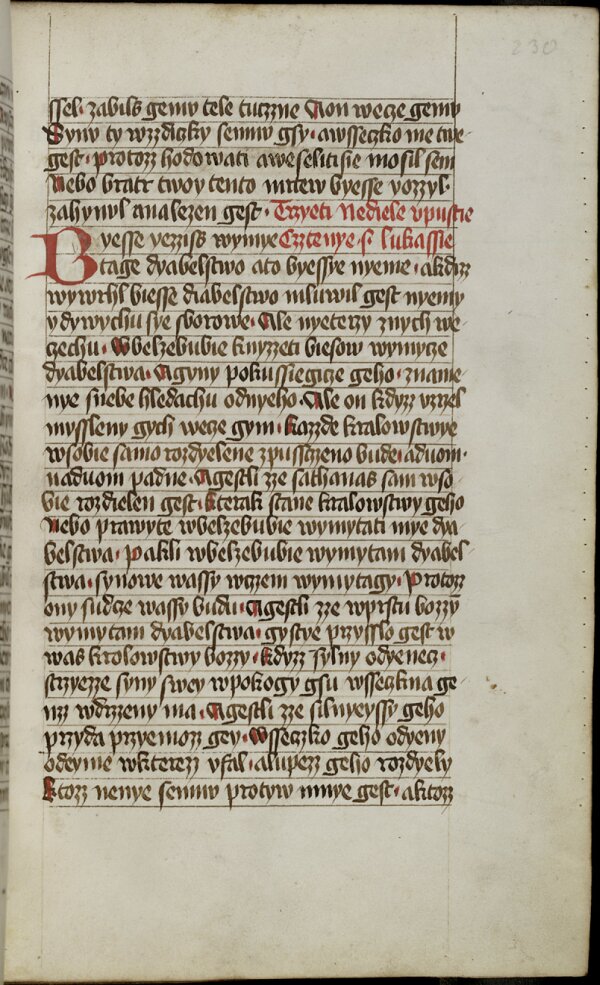 230
ssel · zabils gemu tele tuczne Aon wecze gemu
Synu ty wzzdiczky semnu gsy · awsseczko me twe
gest · protozz hodowati aweselitisie mosil sem
Nebo bratr twoy tento mrtew byesse yozzyl ·
zahynul analezen gest · Trzyeti Nediele vpustie
Byesse yezziss wymye Cztenye · s · lukassie
tage dyabelstwo ato byessye nyeme · akdzz
wywrhl biesse diabelstwo mluwil gest nyemy
ydywychu sye sborowe · Ale nyeterzy znych we
czechu · Wbelzebubie knyzzeti biesow wymycze
dyabelstwa · Aginy pokussiegicze geho · zname
nye snebe hledachu odnyeho · Ale on kdyzz vzrzel
myssleny gych wecze gym · Kazzde kralowstwye
wsobie samo rozdyelene zpusstzeno bude · aduom ·
naduom padne · Agestli zze sathanas sam wso
bie rozdielen gest · kterak stane kralowstwy geho
Nebo prawyte wbelzebubie wymytati mye dya
belstwa · Pakli wbelzebubie wymytam dyabel
stwa · synowe wassy wczem wymytagy · Protozz
ony sudcze wassy budu · Agestli zze wprstu bozzy
wymytam dyabelstwa · gystye przysslo gest w
was krolowstwy bozzy · Kdyzz sylny odyenecz ·
strzyezze syny swey wpokogy gsu wsseczkna ge
nzz wdrzzeny ma · Agestli zze silnyeyssy geho
przyda przyemozz gey · Wsseczko geho odyeny
odeyme wkterezz vfal · alupezz geho rozdyely
Ktozz nenye semnu protyw mnye gest · aktozz